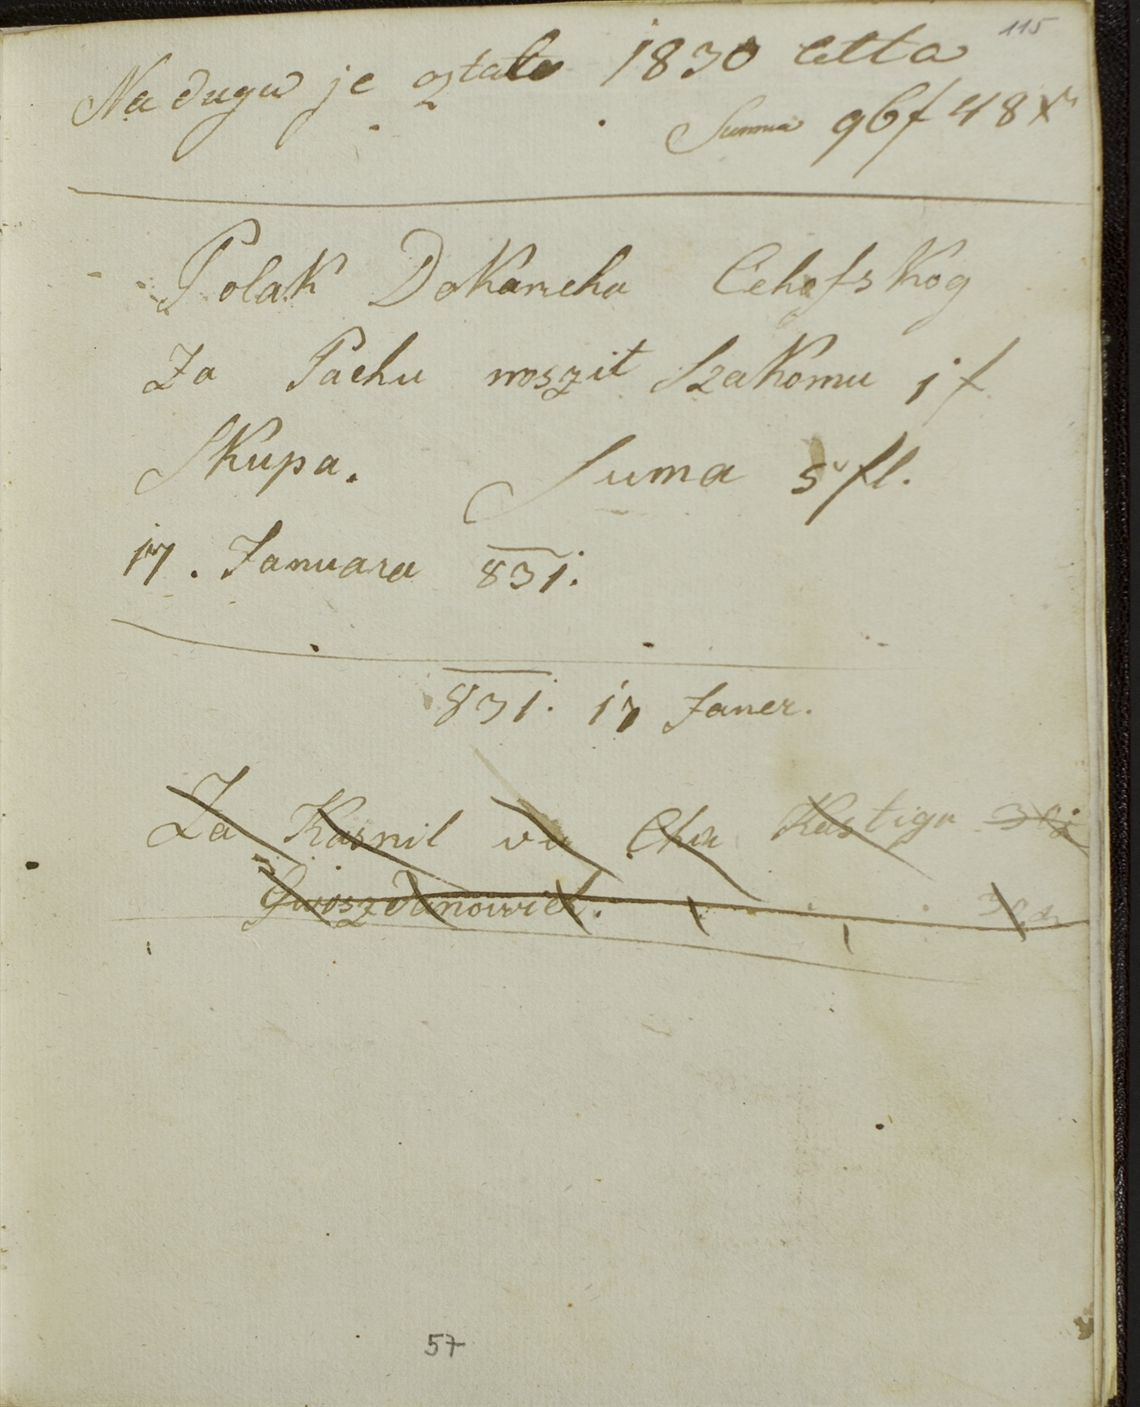 115
Na dugu je ostalo 1830 Letta
Summa 96f 48 Xr
Polak Dokancha Cehefskog
Za Pachu noszit Szakomu 1 f
Skupa. Suma 5 fl.
17. Januara 831.
831. 17 Janer.
Za Kasnil vu Cha Kastigu
Gwoszdanowich.
57